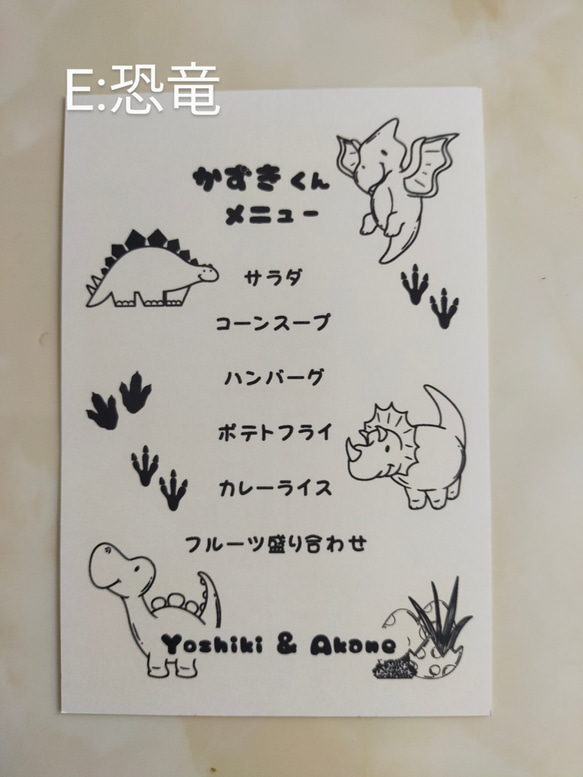 E:恐竜
かずきくん
メニュー
サラダ
コーンスープ
ハンバーグ
ポテトフライ
カレーライス
フルーツ盛り合わせ
Yoshiki & Akane